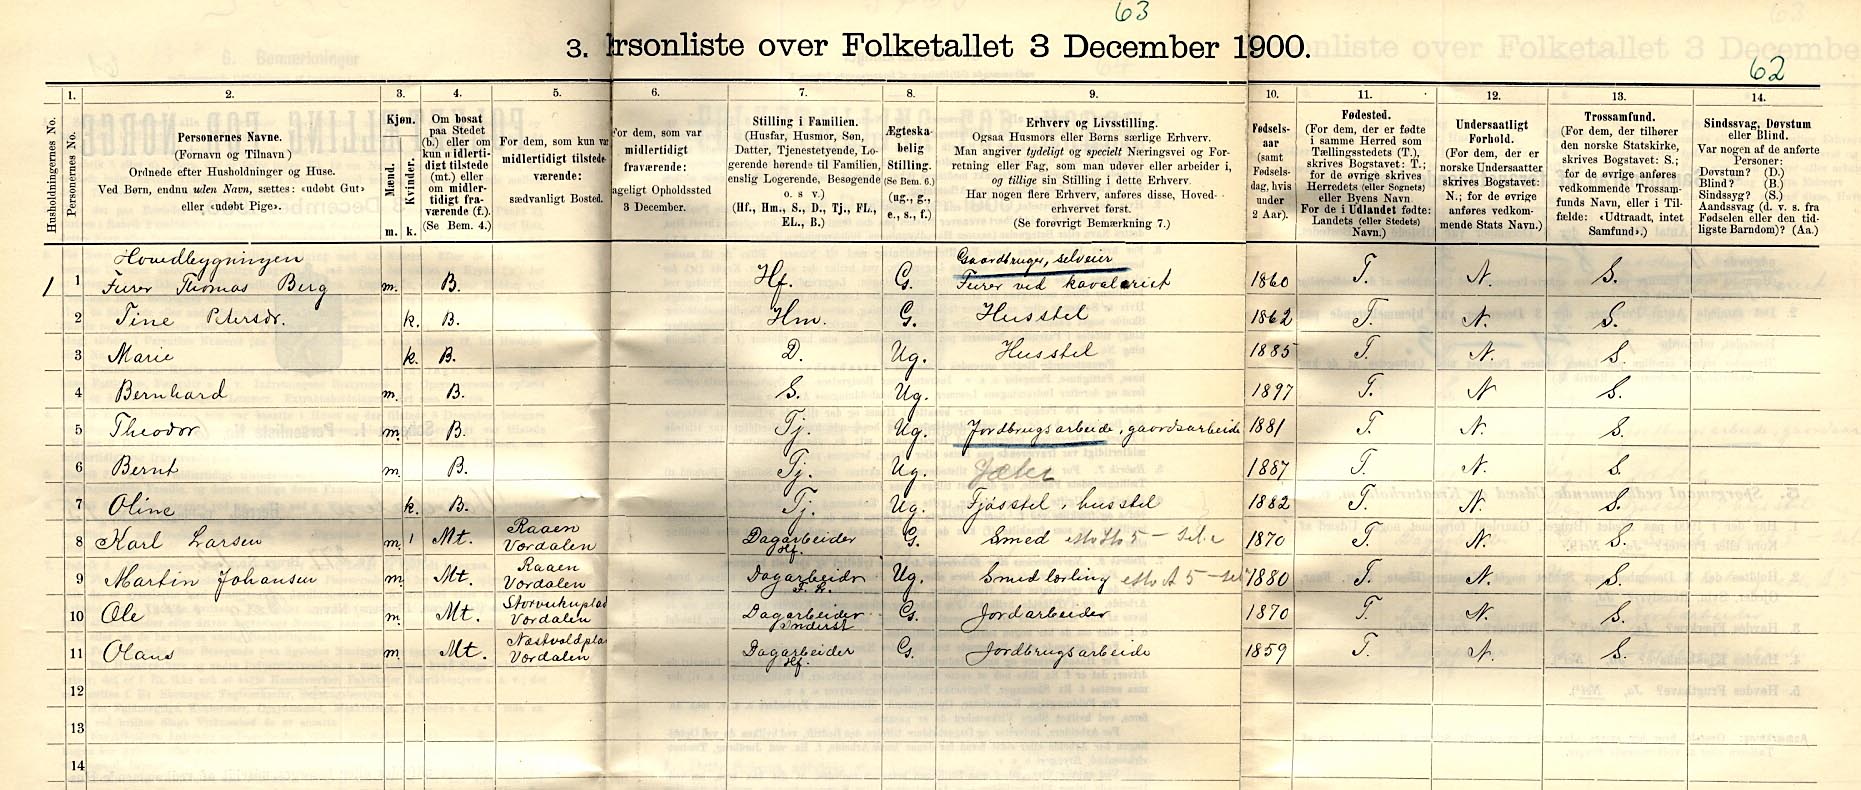 63
3. Personliste over Folketallet 3 December 1900.
62
Husholdningernes No.
1.
Personernes No.
2.
Personernes Navne.
(Fornavn og Tilnavn)
Ordnede efter Husholdninger og Huse.
Ved Børn, endnu uden Navn, sættes: «udøbt Gut»
eller «udøbt Pige».
3.
Kjøn.
Mænd.
Kvinder.
m. k.
4.
Om bosat
paa Stedet
(b.) eller om
kun midlerti-
digt tilstede
(mt.) eller
om midler-
tidigt fra-
værende (f.).
(Se Bem. 4.)
5.
For dem, som kun var
midlertidigt tilstede-
værende:
sædvanligt Bosted.
6.
For dem, som var
midlertidigt
fraværende:
ageligt Opholdssted
3 December.
7.
Stilling i Familien.
(Husfar, Husmor, Søn,
Datter, Tjenestetyende, Lo-
gerende hørende til Familien,
enslig Logerende, Besøgende
o. s v.)
(Hf., Hm., S., D., Tj., FL.,
EL., B.)
8.
Ægteska-
belig
Stilling.
(Se Bem. 6.)
(ug., g.,
e., s., f.)
9.
Erhverv og Livsstilling.
Ogsaa Husmors eller Børns særlige Erhverv.
Man angiver tydeligt og specielt Næringsvei og For-
retning eller Fag, som man udøver eller arbeider i,
og tillige sin Stilling i dette Erhverv.
Har nogen flere Erhverv, anføres disse, Hoved-
erhvervet først.
(Se forøvrigt Bemærkning 7.)
10.
Fødsels-
aar
(samt
Fødsels-
dag, hvis
under
2 Aar).
11.
Fødested.
(For dem, der er fødte
i samme Herred som
Tællingsstedets (T.),
skrives Bogstavet: T.;
for de øvrige skrives
Herredets (eller Sognets)
eller Byens Navn
For de i Udlandet fødte:
Landets (eller Stedets)
Navn.)
12.
Undersaatligt
Forhold.
(For de, der er
norske Undersaatter
skrives Bogstavet:
N.; for de øvrige
anføres vedkom-
mende Stats Navn.)
13.
Trossamfund.
(For dem, der tilhører
den norske Statskirke,
skrives Bogstavet: S.;
for de øvrige anføres
vedkommende Trossam-
funds Navn, eller i Til-
fælde: «Udtraadt, intet
Samfund».)
14.
Sindssvag, Døvstum
eller Blind.
Var nogen af de anførte
Personer:
Døvstum? (D.)
Blind? (B.)
Sindssyg? (S.)
Aandssvag (d. v. s. fra
Fødselen eller den tid-
ligste Barndom)? (Aa.)
Hovedbygningen
1 1 Furer Thomas Berg m. B. Hf. G. Gaardbruger, selveier Furer ved kavaleriet 1860 T. N. S.
2 Tine Petersdr. k. B. Hm. G. Husstel 1862 T. N. S.
3 Marie k. B. D. Ug. Husstel 1885 T. N. S.
4 Bernhard m. B. S. Ug. 1897 T. N S.
5 Theodor m. B. Tj. Ug. Jordbrugsarbeide, gaardsarbeide 1881 T. N. S.
6 Bernt m. B. Tj. Ug. Gjæter 1887 T. N. S.
7 Oline k. B. Tj. Ug. Fjøsstel, husstel 1882 T. N. S.
8 Karl Larsen m. Mt. Raaen Værdalen Dagarbeider Hf. G. Smed 1870 T. N. S.
9 Martin Johansen m. Mt. Raaen Værdalen Dagarbeider Ug. Smedlærling 1880 T. N. S.
10 Ole m. Mt. Værdalen Dagarbeider Inderst G. Jordarbeider 1870 T. N. S.
11 Olaus m. Mt. Næstvoldpla Værdalen Dagarbeider Hf. G. Jordbrugsarbeide 1859 T. N. S.
12
13
14